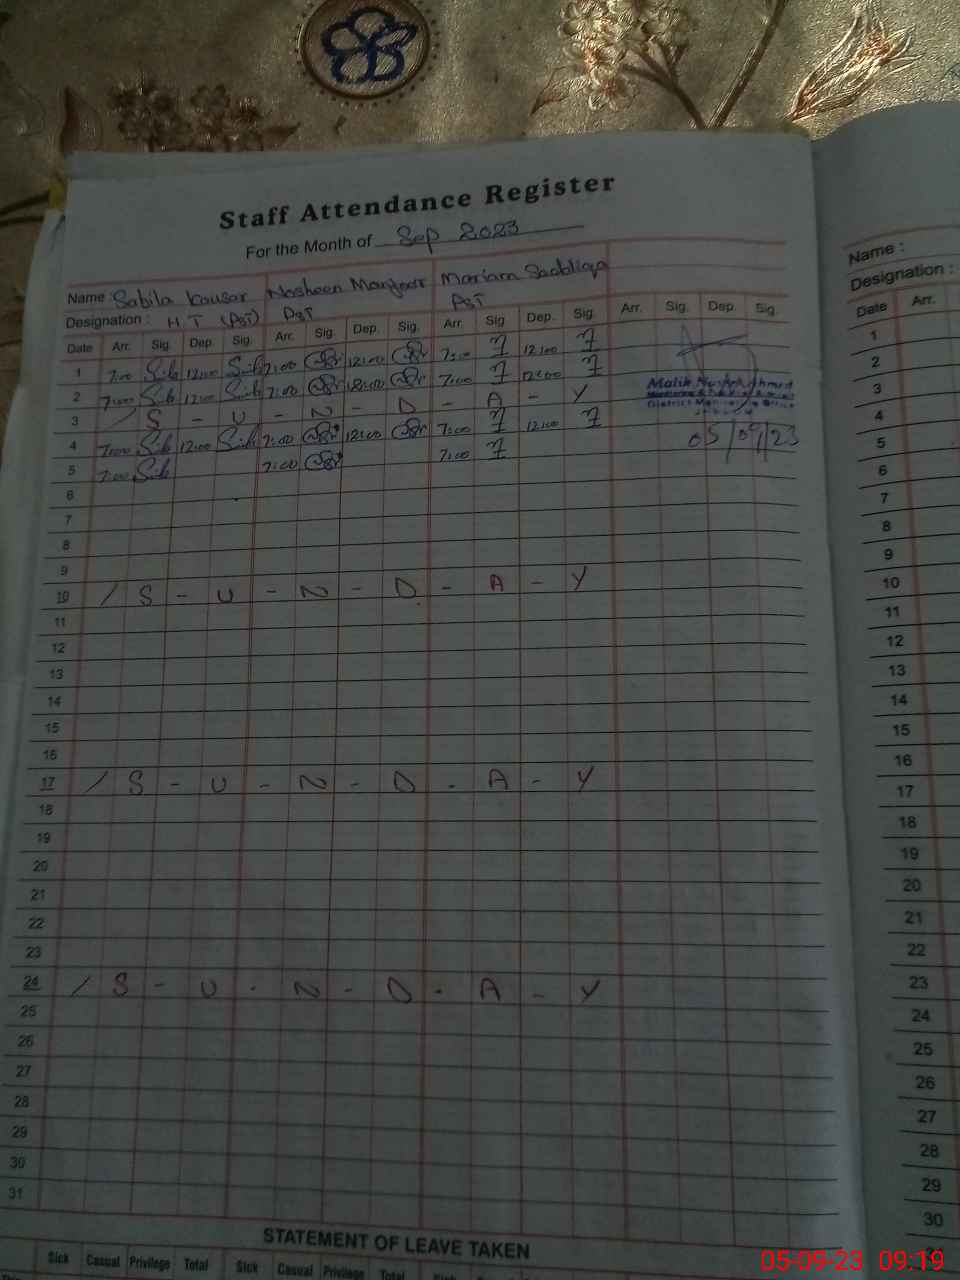 Staff Attendance Register
For the Month of Sep 2023
Name : Sabila Kousar Nosheen Manzoor Mariam Saddiqa
Designation : HT (PST) PST PST
Date Arr. Sig. Dep. Sig. Arr. Sig. Dep. Sig. Arr. Sig Dep. Sig. Arr. Sig. Dep. Sig.
1 7:00 12:00 7:00 12:00 7:00 12:00
2 7:00 12:00 7:00 12:00 7:00 12:00
3 / S - U - N - D - A - Y
4 7:00 12:00 7:00 12:00 7:00 12:00
5 7:00 7:00 7:00
6
7
8
9
10 / S - U - N - D - A - Y
11
12
13
14
15
16
17 / S - U - N - D - A - Y
18
19
20
21
22
23
24 / S - U - N - D - A - Y
25
26
27
28
29
30
31
Malik
District Monitoring Office
05/09/23
STATEMENT OF LEAVE TAKEN
Sick Casual Privilege Total Sick Casual Privilege Total
Name :
Designation :
Date Arr.
1
2
3
4
5
6
7
8
9
10
11
12
13
14
15
16
17
18
19
20
21
22
23
24
25
26
27
28
29
30
05-09-23 09:19